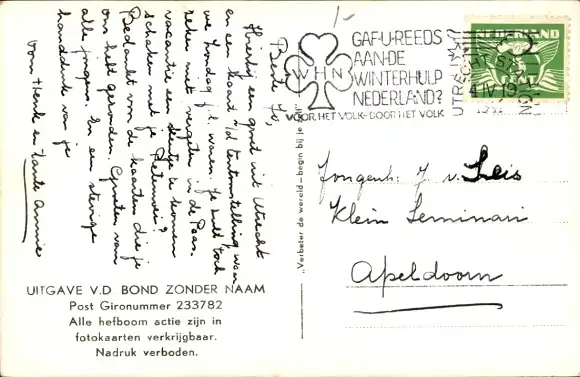 Beste Jo,
Hierbij een groet uit Utrecht
en een kaart v/d tentoonstelling waar
we Zondag j.l. waren. Je zult toch
zeker niet vergeten in de Paas-
vacantie een deuntje te komen
schaken met je
Bedankt voor de kaarten die je
ons hebt gezonden. Groeten van
alle jongens. En een stevige
handdruk van je
oom Henk en tante Annie
UITGAVE V.D BOND ZONDER NAAM
Post Gironummer 233782
Alle hefboom actie zijn in
fotokaarten verkrijgbaar.
Nadruk verboden.
"Verbeter de wereld - begin bij je
WHN
GAF·U·REEDS
AAN·DE
WINTERHULP
NEDERLAND?
VOOR HET VOLK - DOOR HET VOLK
UTRECHT
4 IV 19
NEDERLAND
Jongeh: J v.
Klein Seminari
Apeldoorn